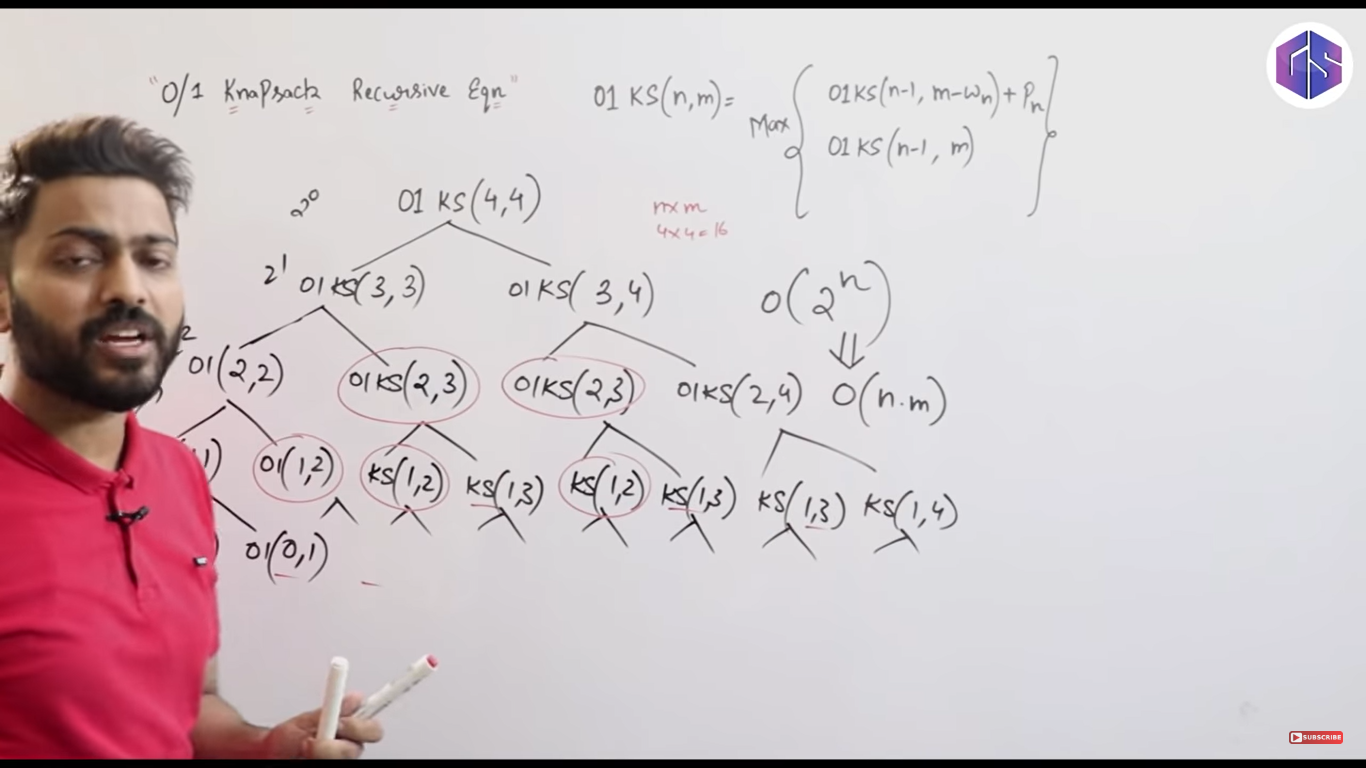 "0/1 Knapsack Recursive Eqn"
01 KS(n,m)= Max { 01KS(n-1, m-wn)+Pn
01KS(n-1, m) }
2^0 01 KS(4,4)
n×m
4×4=16
2^1 01 KS(3,3) 01KS(3,4)
O(2^n)
⇓
O(n.m)
2 01(2,2) 01KS(2,3) 01KS(2,3) 01KS(2,4)
1) 01(1,2) KS(1,2) KS(1,3) KS(1,2) KS(1,3) KS(1,3) KS(1,4)
) 01(0,1)
GS
SUBSCRIBE